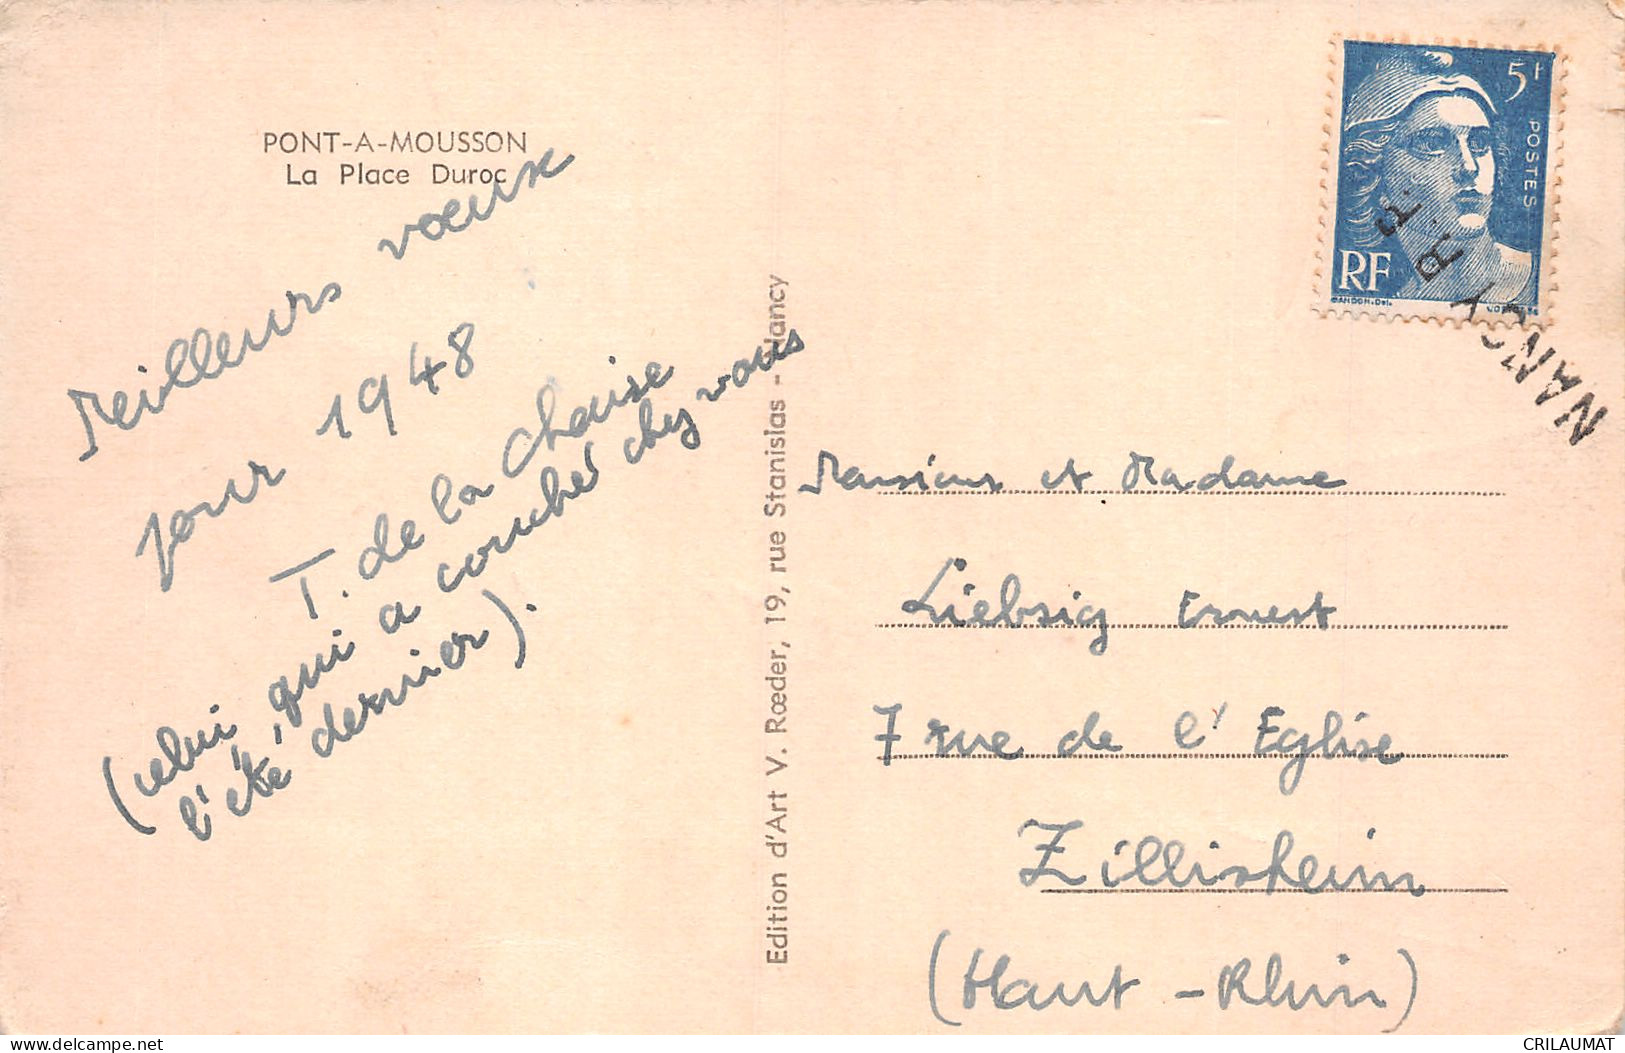 PONT-A-MOUSSON
La Place Duroc
Meilleurs vœux
pour 1948
T. de la Chaise
(celui, qui a couché chez vous
l'été dernier).
Edition d'Art V. Rœder, 19, rue Stanislas - Nancy
5F
POSTES
RF
GANDON.Del.
NANCY R.P.
Monsieur et Madame
Liebsig Ernest
7 rue de l'Eglise
Zillisheim
(Haut-Rhin)
delcampe.net
CRILAUMAT